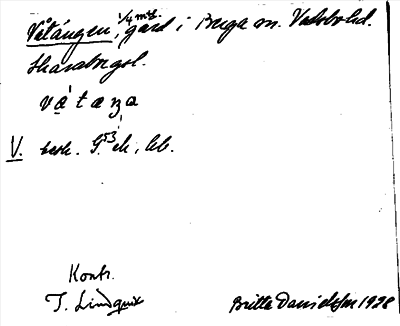 Våtängen, 1/4 mtl. gård i Berga sn. Vadsbo hd.
Skaraborgsl.
våtæŋa
V. besk. G. 53 ek, bb.
Kontr.
T. Lindquist Britta Danielsson 1928